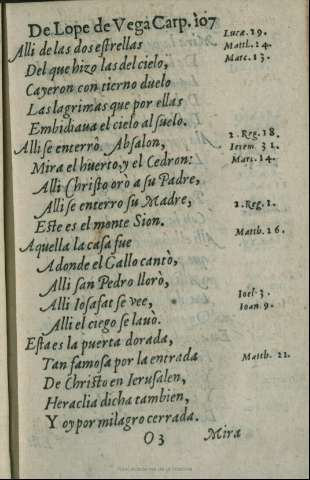 De Lope de Vega Carp. 107
Alli de las dos estrellas
Luca. 19.
Del que hizo las del cielo,
Matt. 24.
Cayeron con tierno duelo
Marc. 13.
Las lagrimas que por ellas
Embidiaua el cielo al suelo.
Alli se enterrò Absalon,
2. Reg. 18.
Mira el huerto, y el Cedron:
Ierem. 31.
Alli Christo orò a su Padre,
Marc. 14.
Alli se enterro su Madre,
2. Reg. 1.
Este es el monte Sion.
Aquella la casa fue
Matth. 26.
A donde el Gallo cantò,
Alli san Pedro llorò,
Alli Iosafat se vee,
Ioel. 3.
Alli el ciego se lauò.
Ioan. 9.
Esta es la puerta dorada,
Tan famosa por la entrada
Matth. 21.
De Christo en Ierusalen,
Heraclia dicha tambien,
Y oy por milagro cerrada.
O3 Mira